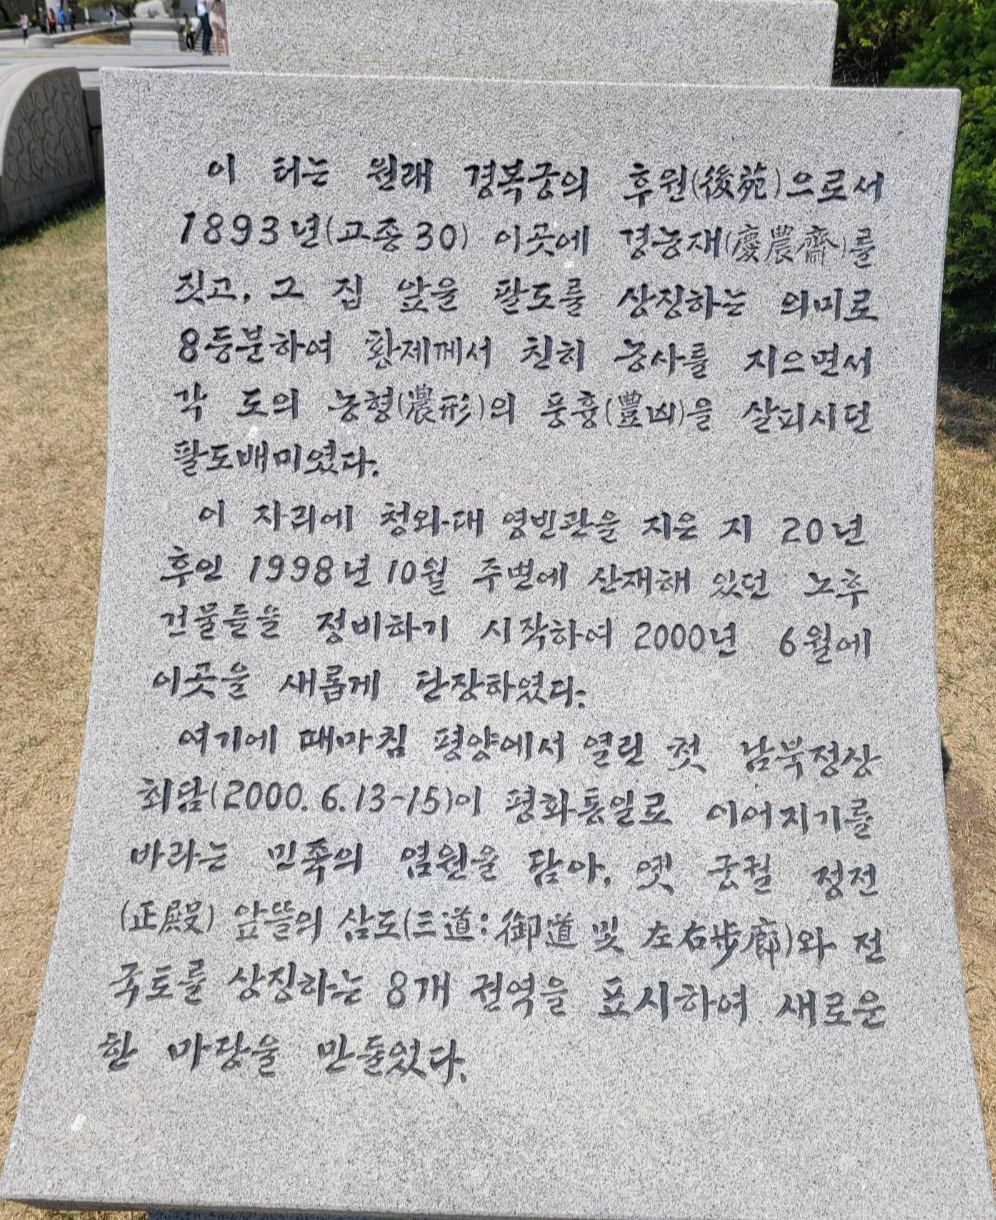 이 터는 원래 경복궁의 후원(後苑)으로서
1893년(고종 30) 이곳에 경농재(慶農齋)를
짓고, 그 집 앞을 팔도를 상징하는 의미로
8등분하여 황제께서 친히 농사를 지으면서
각 도의 농형(農形)의 풍흉(豊凶)을 살피시던
팔도배미였다.
이 자리에 청와대 영빈관을 지은 지 20년
후인 1998년 10월 주변에 산재해 있던 노후
건물들을 정비하기 시작하여 2000년 6월에
이곳을 새롭게 단장하였다.
여기에 때마침 평양에서 열린 첫 남북정상
회담(2000. 6. 13-15)이 평화통일로 이어지기를
바라는 민족의 염원을 담아, 옛 궁궐 정전
(正殿) 앞뜰의 삼도(三道: 御道 및 左右步廊)와 전
국토를 상징하는 8개 권역을 표시하여 새로운
한 마당을 만들었다.